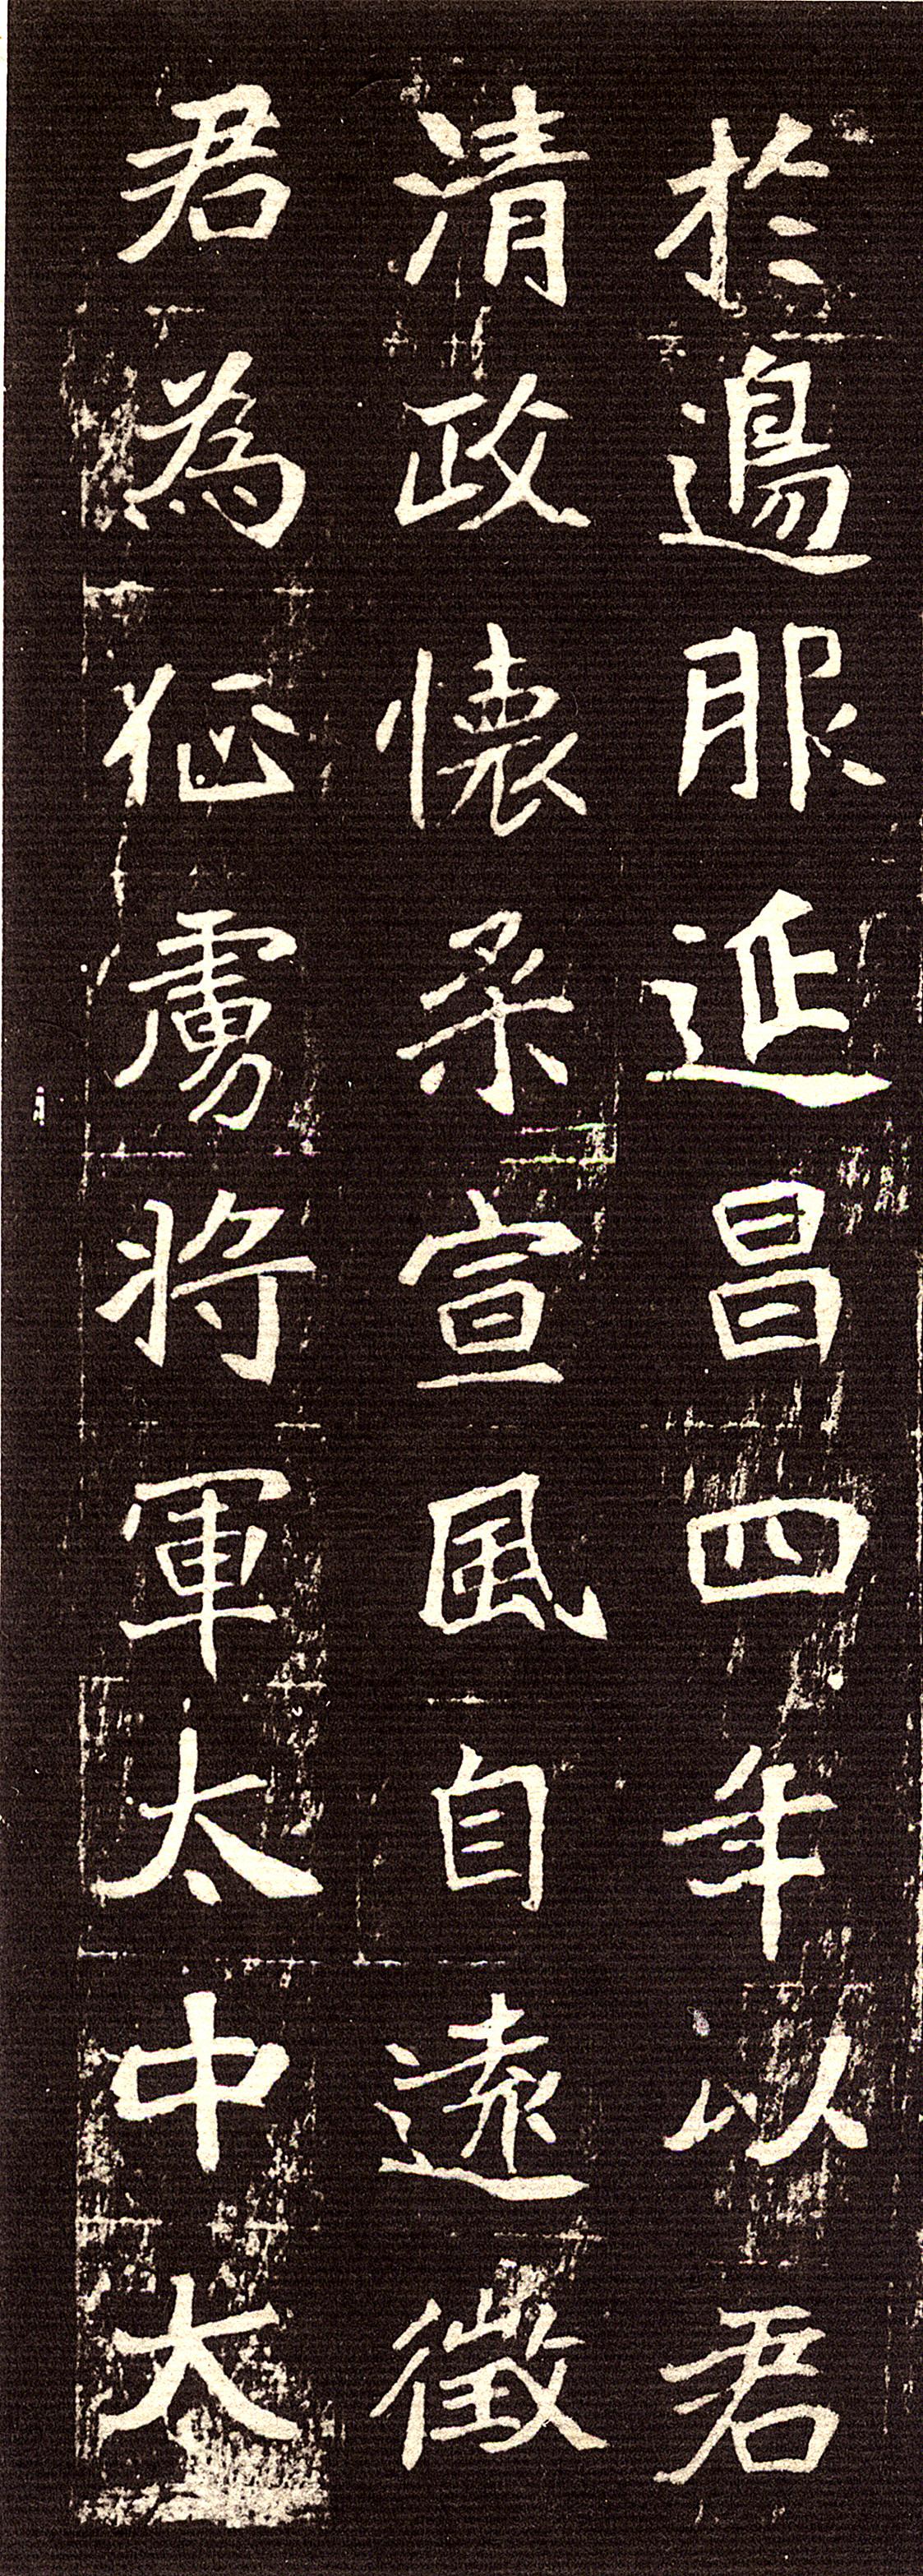 於邊服延昌四年以君
清政懷柔宣風自遠徵
君為征虜將軍太中大